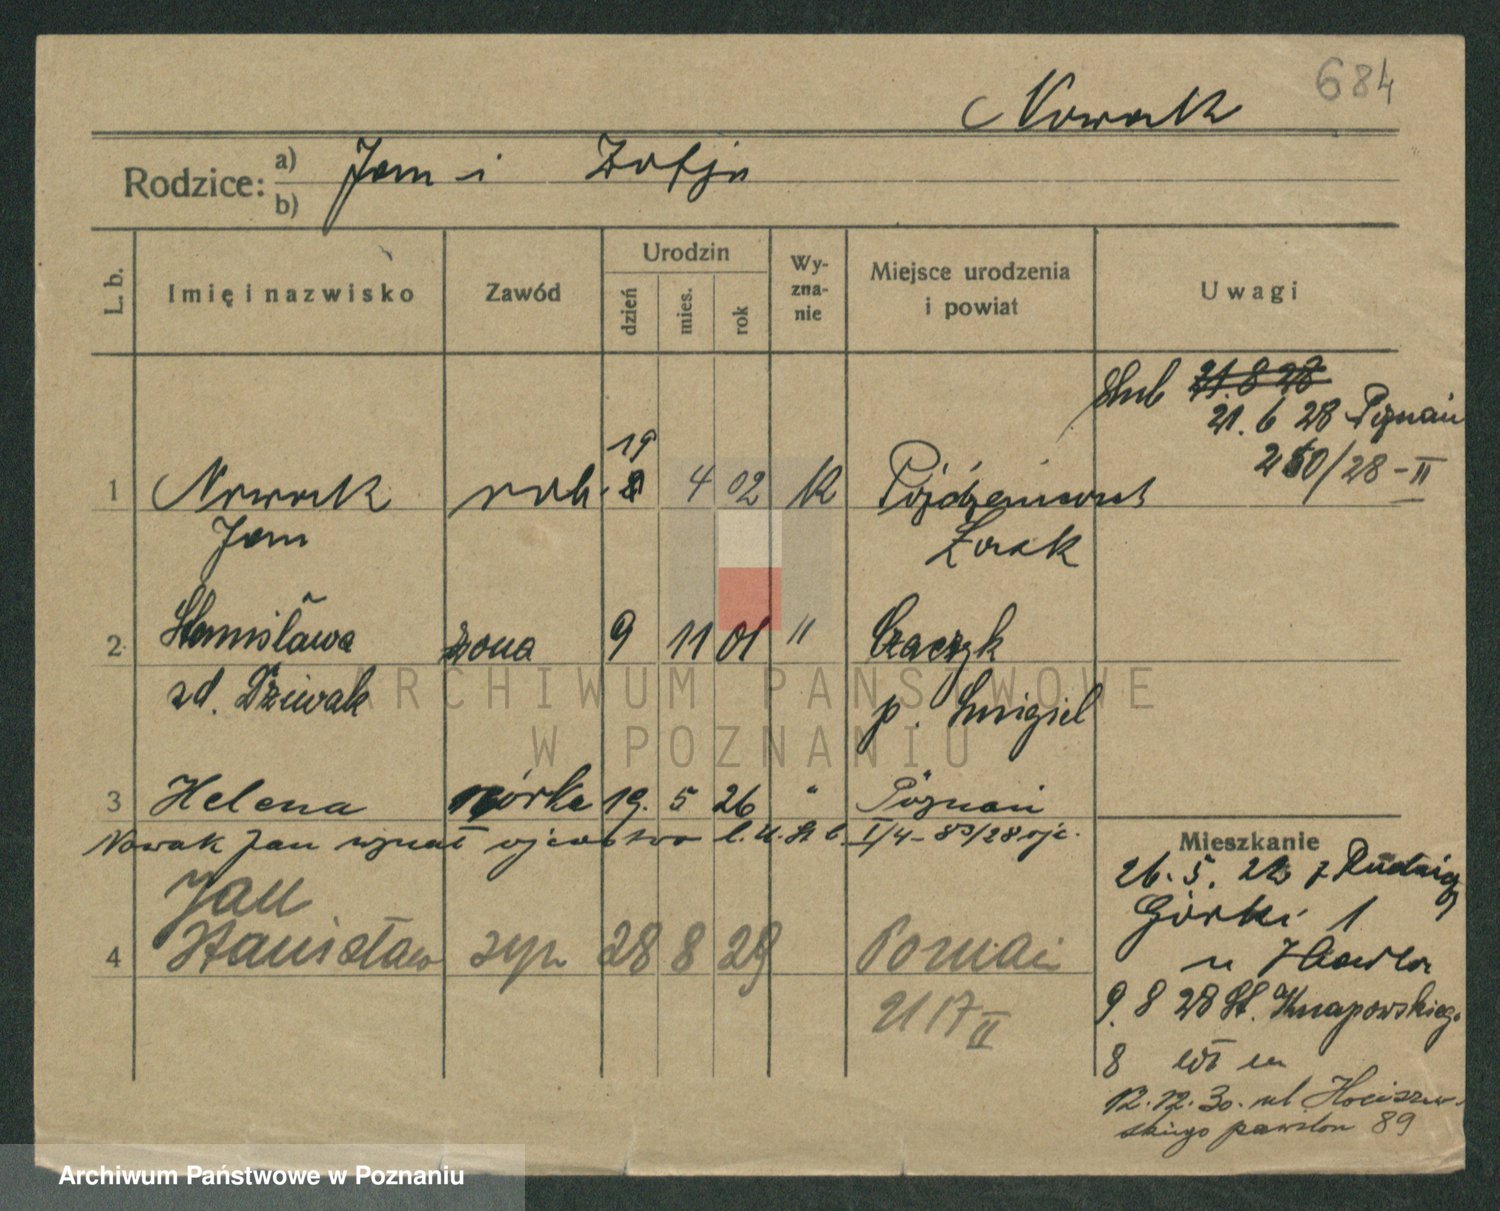 684
Nowak
Rodzice: a) b) Jan i Zofja
L. b.
Imię i nazwisko
Zawód
Urodzin
dzień
mies.
rok
Wy-
zna-
nie
Miejsce urodzenia
i powiat
Uwagi
ślub 21.8 28
21. 6 28 Poznań
250/28 - II
19
1 Nowak rob. 8 4 02 rk
Jan
2 Stanisława żona 9 11 01 " Czacz
zd. Dziwak p. Śmigiel
3 Helena córka 19. 5 26 " Poznań
Nowak Jan uznał ojcostwo
Jan
4 Stanisław syn 28 8 29 Poznań
2117 II
Mieszkanie
26. 5. 28 z
Górki 1
u
9. 8 28 St. Knapowskiego
8
12. 12. 30. ul
skiego pawilon 89
ARCHIWUM PAŃSTWOWE
W POZNANIU
Archiwum Państwowe w Poznaniu